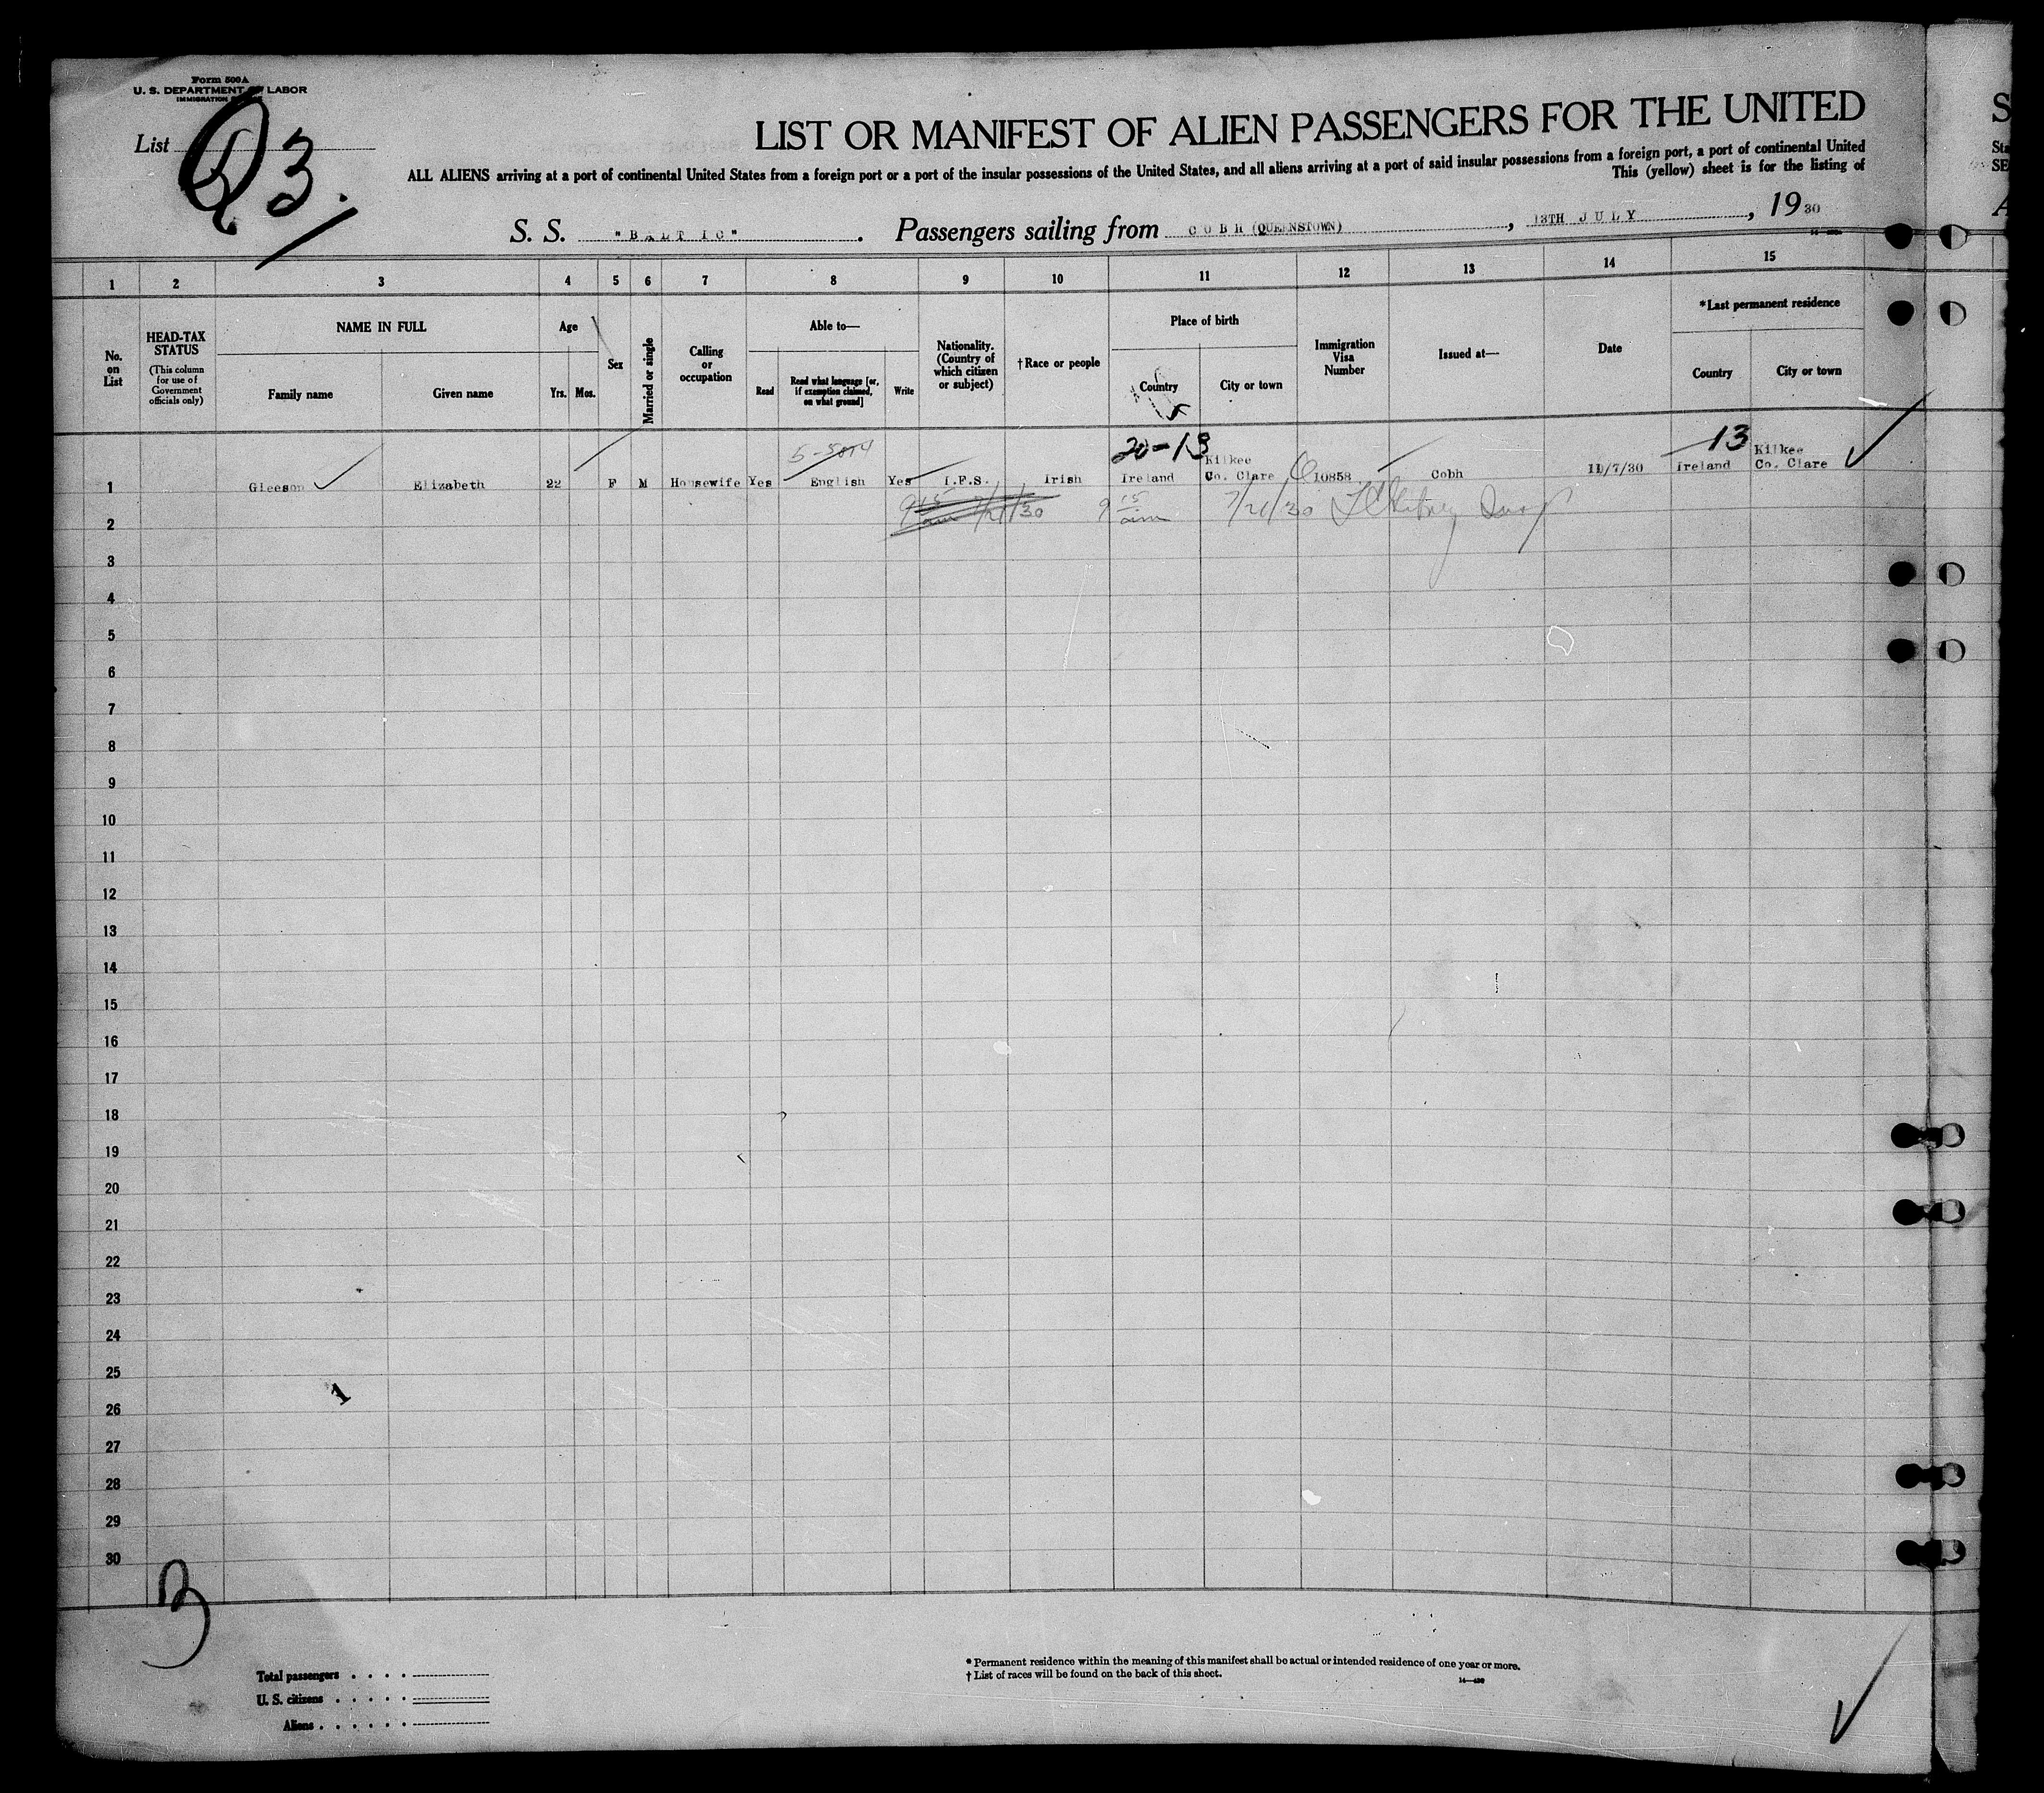 Form 500A
U. S. DEPARTMENT OF LABOR
IMMIGRATION
List 3.
LIST OR MANIFEST OF ALIEN PASSENGERS FOR THE UNITED
S
ALL ALIENS arriving at a port of continental United States from a foreign port or a port of the insular possessions of the United States, and all aliens arriving at a port of said insular possessions from a foreign port, a port of continental United
Sta
This (yellow) sheet is for the listing of
SE
S. S. "BALTIC". Passengers sailing from COBH (QUEENSTOWN), 13TH JULY, 1930
A
1 2 3 4 5 6 7 8 9 10 11 12 13 14 15
No. on List
HEAD-TAX STATUS (This column for use of Government officials only)
NAME IN FULL
Family name
Given name
Age
Yrs. Mos.
Sex
Married or single
Calling or occupation
Able to—
Read
Read what language [or, if exemption claimed, on what ground]
Write
Nationality. (Country of which citizen or subject)
†Race or people
Place of birth
Country
City or town
Immigration Visa Number
Issued at—
Date
*Last permanent residence
Country
City or town
20-13 13
Kilkee Kilkee
1 Gleeson Elizabeth 22 F M Housewife Yes English Yes I.F.S. Irish Ireland Co. Clare 10858 Cobh 11/7/30 Ireland Co. Clare
2 9 15 am 7/21/30 9 15 am 7/21/30
3
4
5
6
7
8
9
10
11
12
13
14
15
16
17
18
19
20
21
22
23
24
25
1
26
27
28
29
30
Total passengers . . . .
U. S. citizens . . . . .
Aliens . . . . . .
* Permanent residence within the meaning of this manifest shall be actual or intended residence of one year or more.
† List of races will be found on the back of this sheet.